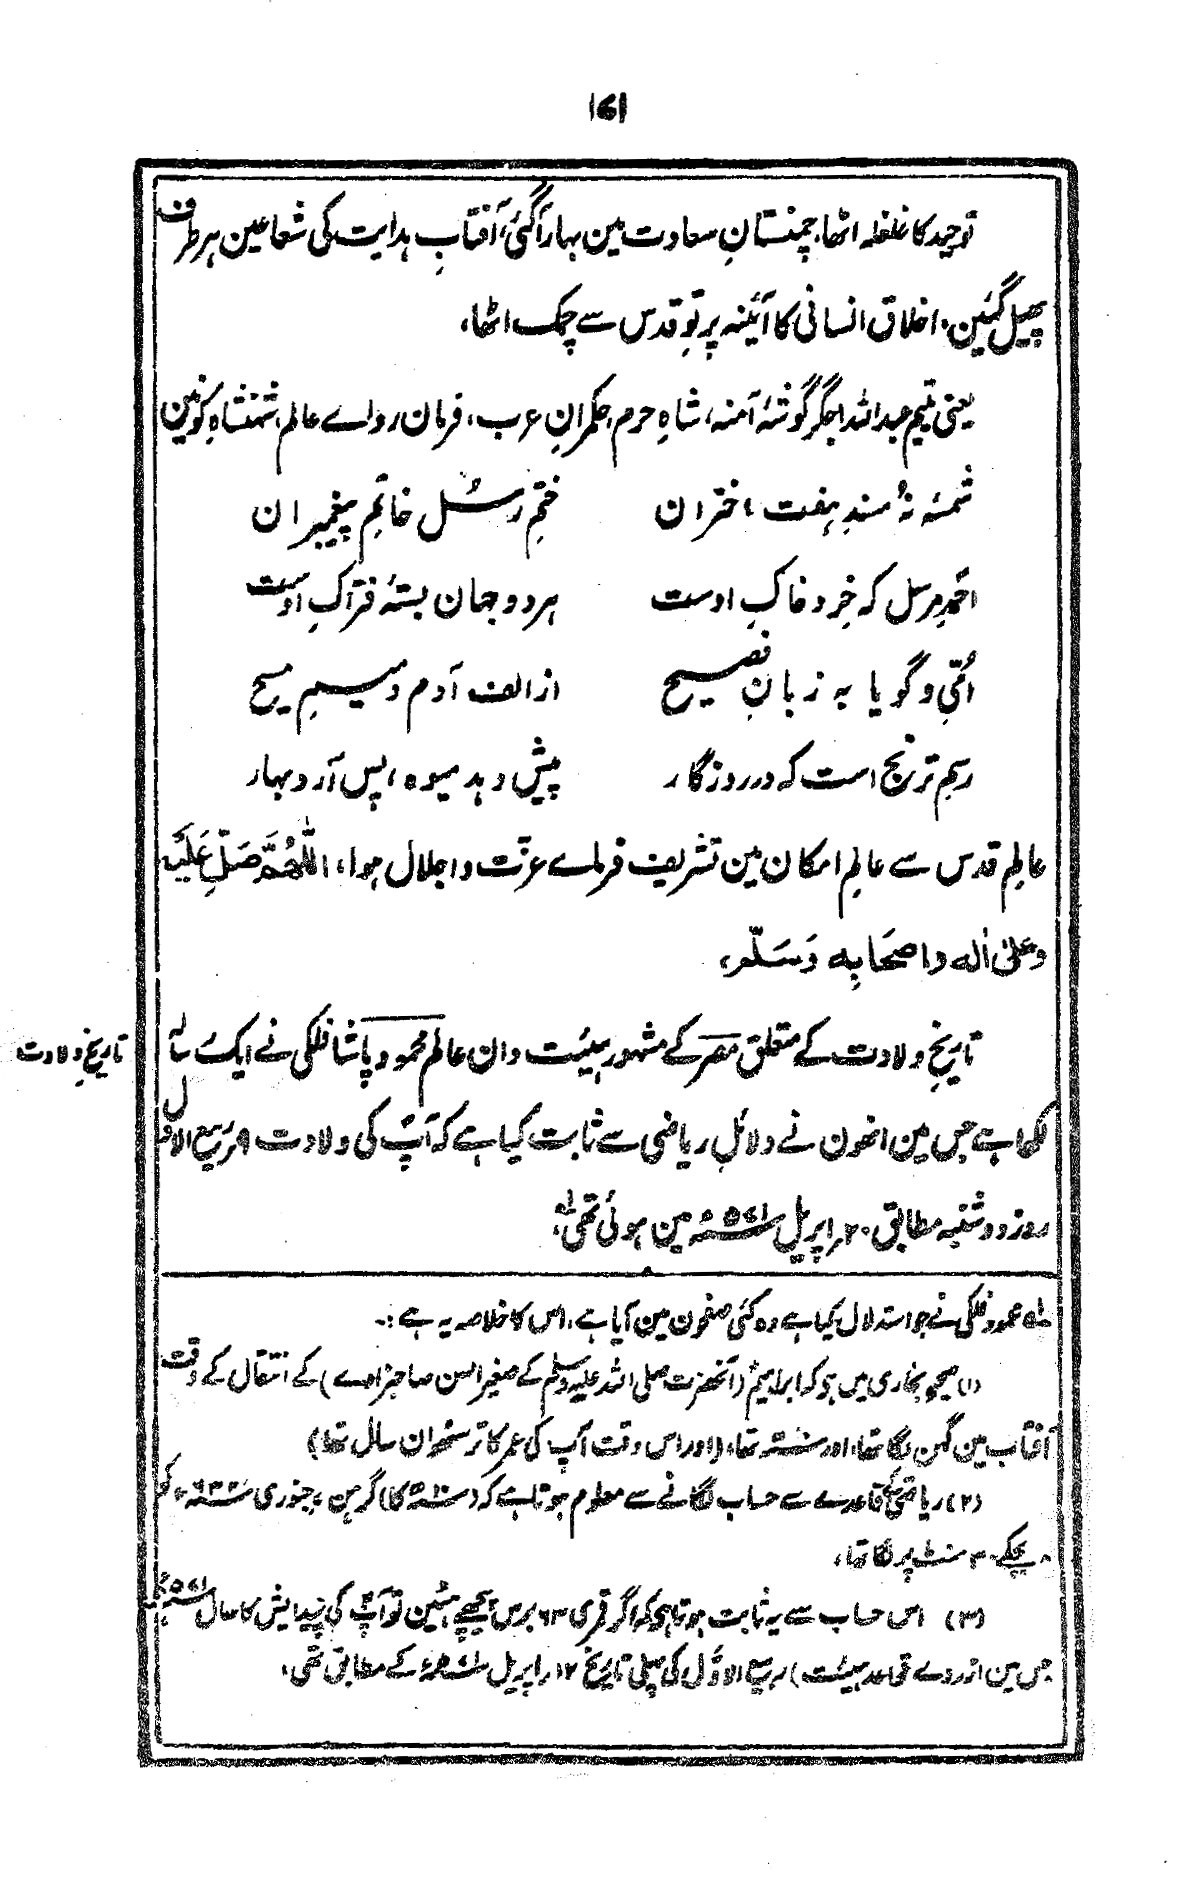 ۱۷۱
توحید کا غلغلہ اٹھا، چمنستانِ سعادت مین بہار آگئی، آفتابِ ہدایت کی شعاعین ہر طرف
پھیل گئین، اخلاق انسانی کا آئینہ پرتوِ قدس سے چمک اٹھا،
یعنی یتیم عبداللہ، جگر گوشۂ آمنہ، شاہِ حرم، حکمرانِ عرب، فرمان رواے عالم، شہنشاہِ کونین
شمسۂ نُہ مسندِ ہفت اختران ختمِ رسُل خاتمِ پیغمبران
احمدِ مرسل کہ خِرد خاکِ اوست ہر دو جہان بستۂ فتراکِ اوست
اُمّی و گویا بہ زبانِ فصیح از الف آدم و میم مسیح
رسم ترنج است کہ در روزگار پیش دہد میوہ، پس آرد بہار
عالمِ قدس سے عالمِ امکان مین تشریف فرماے عزّت و اجلال ہوا، اللّٰھُمَّ صَلِّ عَلَیْہِ
وعلیٰ اٰلہ واصحَابِہ وَسَلّم،
تاریخِ ولادت کے متعلق مصر کے مشہور ہیئت دان عالم محمود پاشا فلکی نے ایک رسالہ
تاریخِ ولادت
لکھا ہے جس مین انھون نے دلائلِ ریاضی سے ثابت کیا ہے کہ آپؐ کی ولادت ۹ ربیع الاول
روز دوشنبہ مطابق ۲۰ اپریل ۵۷۱ء مین ہوئی تھی،
لہ محمود فلکی نے جو استدلال کیا ہے وہ کئی صفحون مین آیا ہے، اس کا خلاصہ یہ ہے:۔
(۱) صحیح بخاری میں ہو کہ ابراہیمؑ (آنحضرت صلی اللہ علیہ وسلم کے صغیر السن صاحبزادے) کے انتقال کے وقت
آفتاب مین گہن لگا تھا، اور سنہ ۱۰ھ تھا، (اور اس وقت آپ کی عمر کا ترسٹھوان سال تھا)
(۲) ریاضی کے قاعدے سے حساب لگانے سے معلوم ہوتا ہے کہ (سنہ ۱۰ھ کا) گرہن ۷، جنوری ۶۳۲ء کو
۸ بجکے ۳۰ منٹ پر لگا تھا،
(۳) اس حساب سے یہ ثابت ہوتا ہو کہ اگر قمری ۶۳ برس پیچھے ہٹین تو آپؐ کی پیدایش کا سال ۵۷۱ء ہے
جس مین ازروے قواعد ہیئت) ربیع الاوّل کی پہلی تاریخ ۱۲ اپریل ۵۷۱ء کے مطابق تھی،